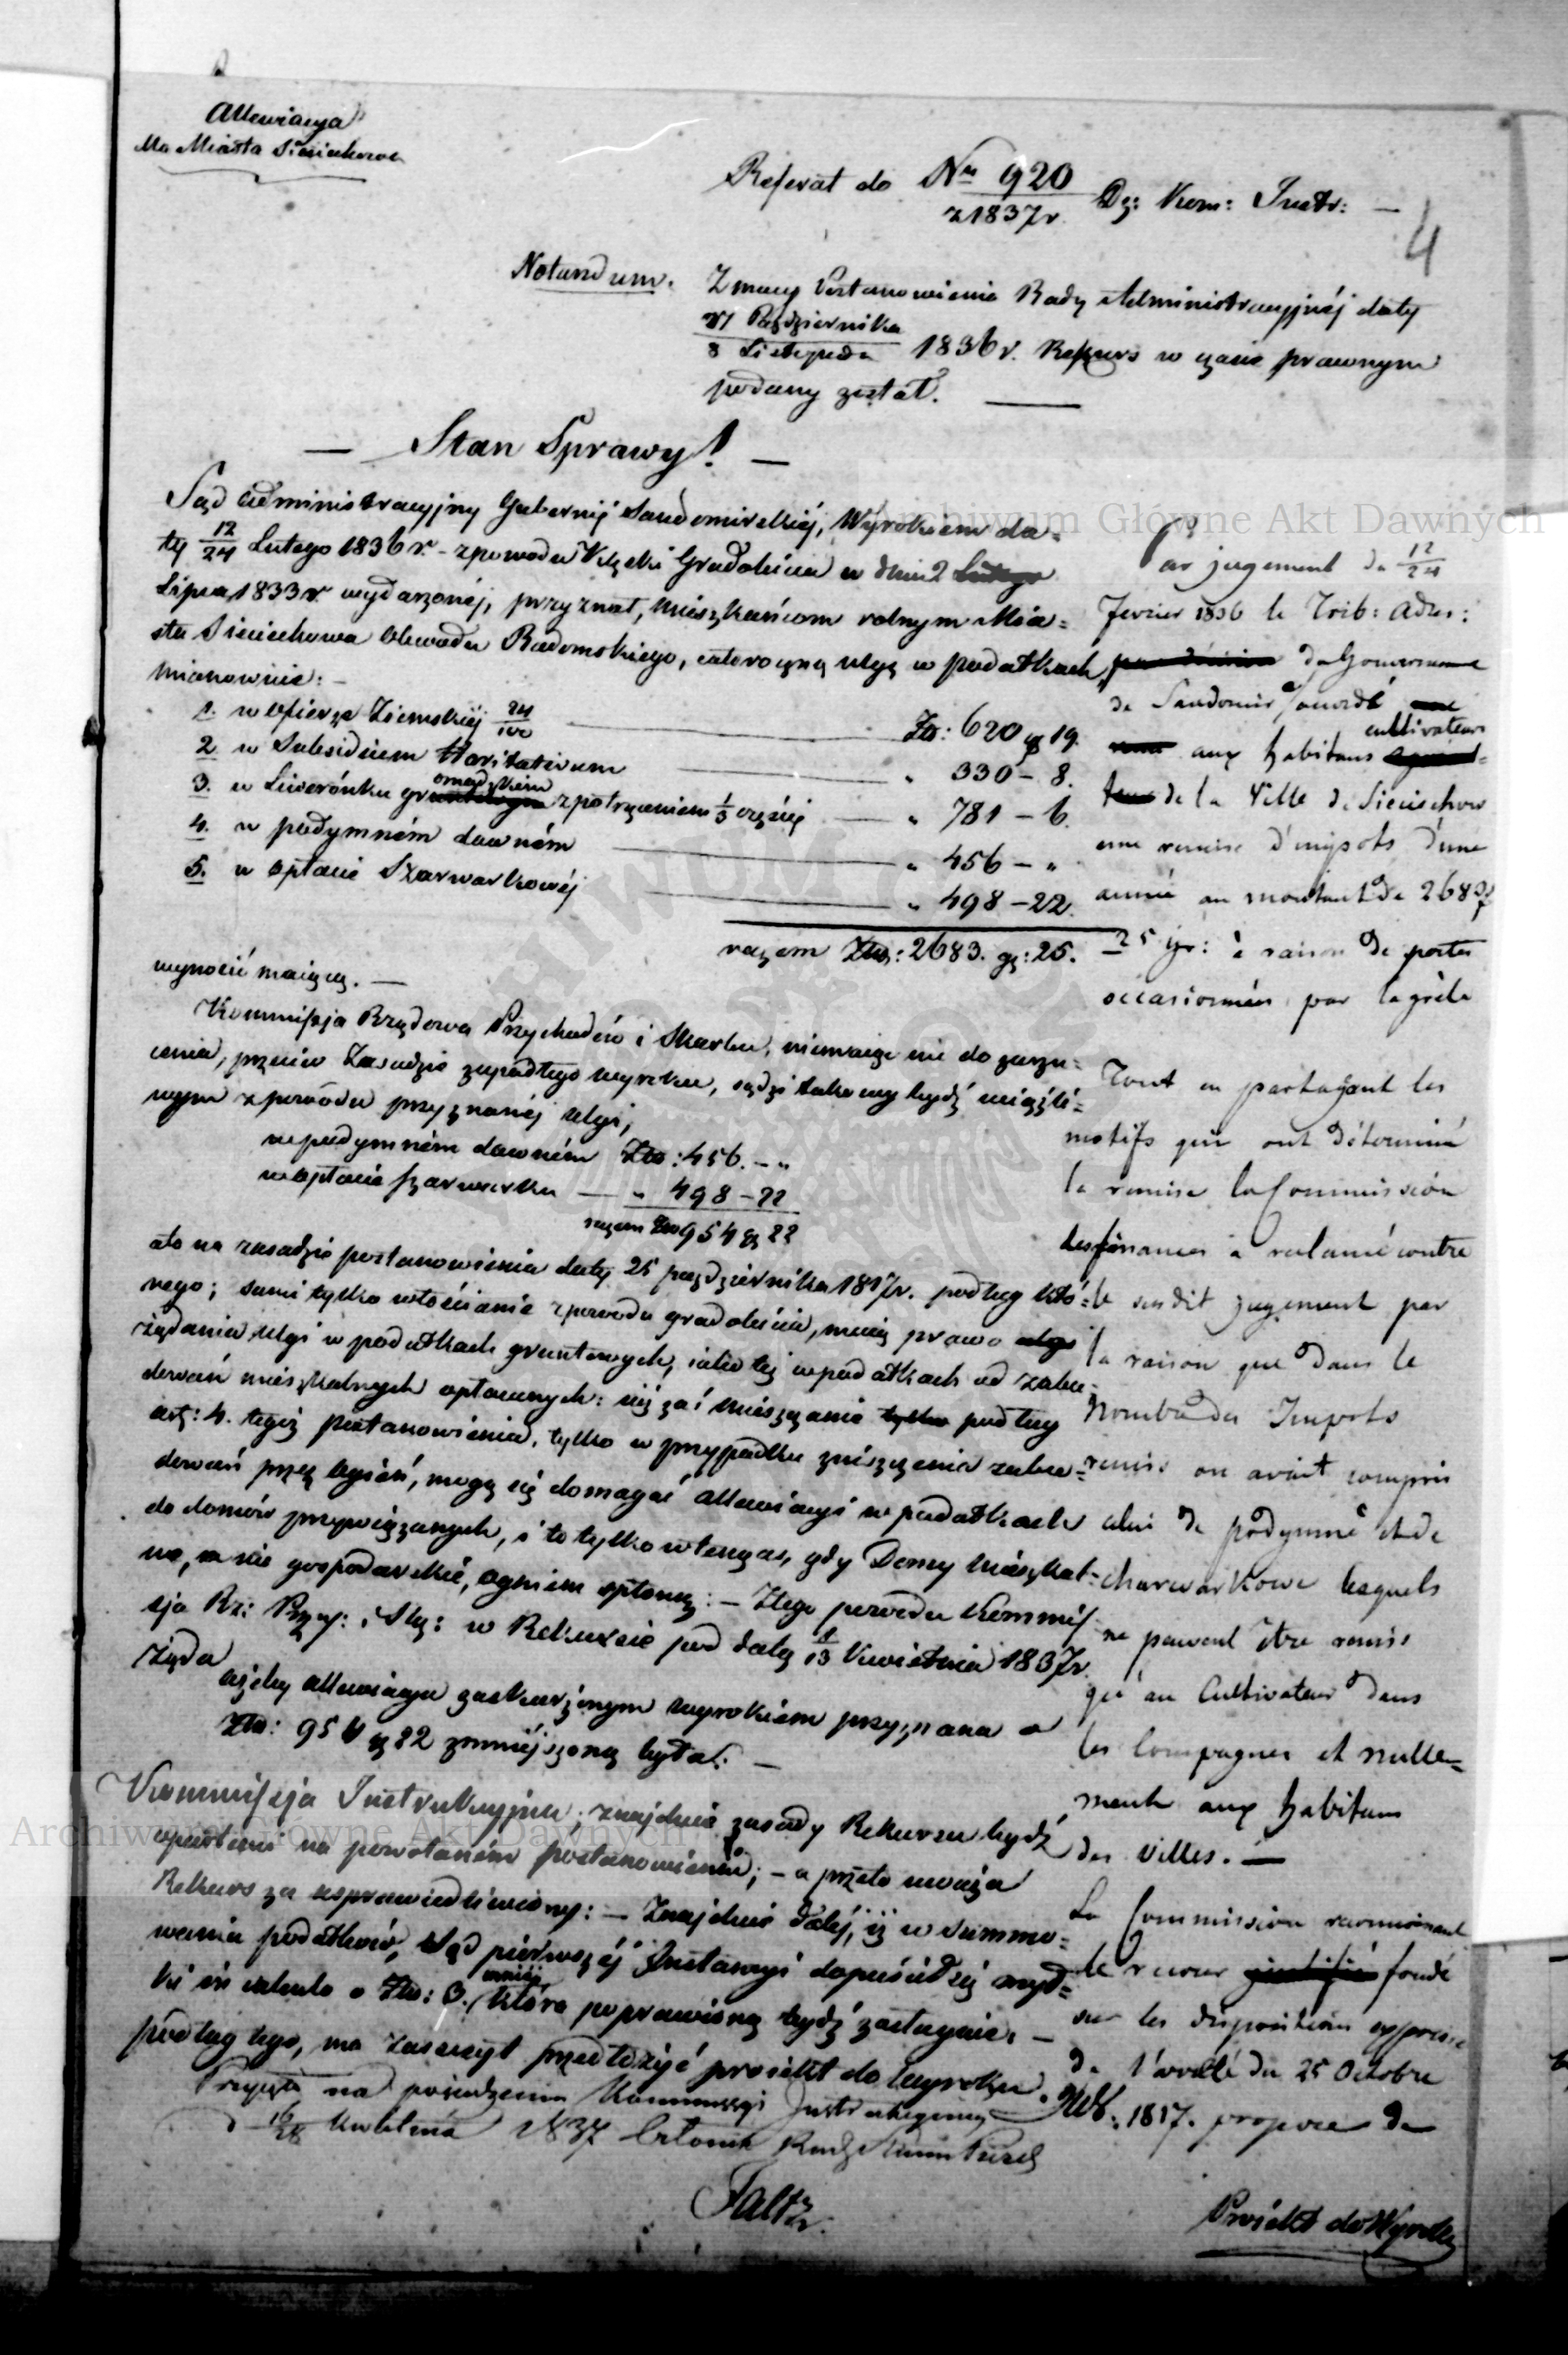 Allewiacya
dla Miasta Sieciechowa
Referat do Nru 920 Dz: Kom: Instr: —
z 1837 r.
4
Notandum. Z mocy Postanowienia Rady Administracyjnéj daty
27 Października
8 Listopada 1836 r. Rekurs w czasie prawnym
podany został. —
— Stan Sprawy! —
Sąd Administracyjny Gubernij Sandomirskiéj, Wyrokiem da=
ty 12/24 Lutego 1836 r. - z powodu Klęski Gradobicia w dniu 2 Lutego
Lipca 1833 r. wydarzonéj, przyznał, Mieszkańcom rolnym Mia=
sta Sieciechowa Obwodu Radomskiego, całoroczną ulgę w podatkach,
mianowicie: -
1. w Ofierze Ziemskiéj 24/100 — Złp: 620 gr 19.
2. w Subsidium Charitativum — " 330 - 8.
3. w Liwerónku gromadzkim z potrąceniem 1/3 częscі — " 781 - 6.
4. w podymném dawném — " 456 - "
5. w opłacie Szarwarkowéj — " 498 - 22.
razem Złp: 2683. gr: 25.
wynosić maiącą. —
Kommissja Rządowa Przychodów i Skarbu, niemaiąc nic do zarzu=
cenia, przeciw Zasadzie zapadłego wyroku, sądzi takowy bydź uciążli=
wym z powodu przyznanéj ulgi;
w podymném dawném Złp: 456. - "
w opłacie szarwarku — " 498 - 22
razem Złp 954 gr 22
a to na zasadzie postanowienia daty 25 października 1817 r. podług któ=
rego; sami tylko włościanie z powodu gradobicia, maią prawo ulgi
żądania, ulgi w podatkach gruntowych, iako też w podatkach od zabu=
dowań mieszkalnych opłacanych: iż zaś Mieszczanie tylko podług
art: 4. tegoż postanowienia, tylko w przypadku zniszczenia zabu=
dowań przez Ogień, mogą się domagać Allewiacyi w podatkach
do domów przywiązanych, i to tylko wtenczas, gdy Domy Mieszkal=
ne, a nie gospodarskie, ogniem spłoną: - Z tego powodu Kommis=
sja Rz: Przy: i Skr: w Rekursie pod datą 1/13 Kwietnia 1837 r.
żąda
ażeby Allewiacya zaskarżonym wyrokiem przyznana o
Złp: 954 gr 22 zmniéjszoną była. —
Kommissja Instrukcyjna, znajduie zasady Rekursu bydź
opartemi na powołaném postanowieniu; - a przeto uważa
Rekurs za usprawiedliwiony: - Znajduie daléj, iż w summo=
waniu podatków, Sąd piérwszéj Instancyi dopuścił się omył=
ki in calculo o Złp: 3. mniéj, która poprawioną bydź zasługuie. —
podług tego, ma zaszczyt przedłożyć proiekt do Wyroku.
Przyjęto na posiedzeniu Kommissyi Instrukcyinéj
d. 16/28 Kwietnia 1837 Członek Rady Stanu
Faltz
Par jugement du 12/24
fevrier 1836 le Trib: Adm:
du Gouvernement
de Sandomir, accordé
aux habitans cultivateurs
de la Ville de Sieciechow
une remise d'impots d'une
année au montant de 2683 f
25 gr: à raison de pertes
occasionnées par la grêle
Tout en partageant les
motifs qui ont déterminé
la remise la Commission
des finances a reclamé contre
le susdit jugement par
la raison que dans le
Nombre des Impots
remis on avait compris
celui de podymne et de
charwarkowe lesquels
ne peuvent être remis
qu'au Cultivateur dans
les Campagnes et nulle=
ment aux habitans
des Villes. —
La Commission reconnoissant
le recours justifié fondé
sur les dispositions expresses
de l'arrêté du 25 Octobre
1817. propose de
Proiekt do Wyroku
Archiwum Główne Akt Dawnych
Archiwum Główne Akt Dawnych